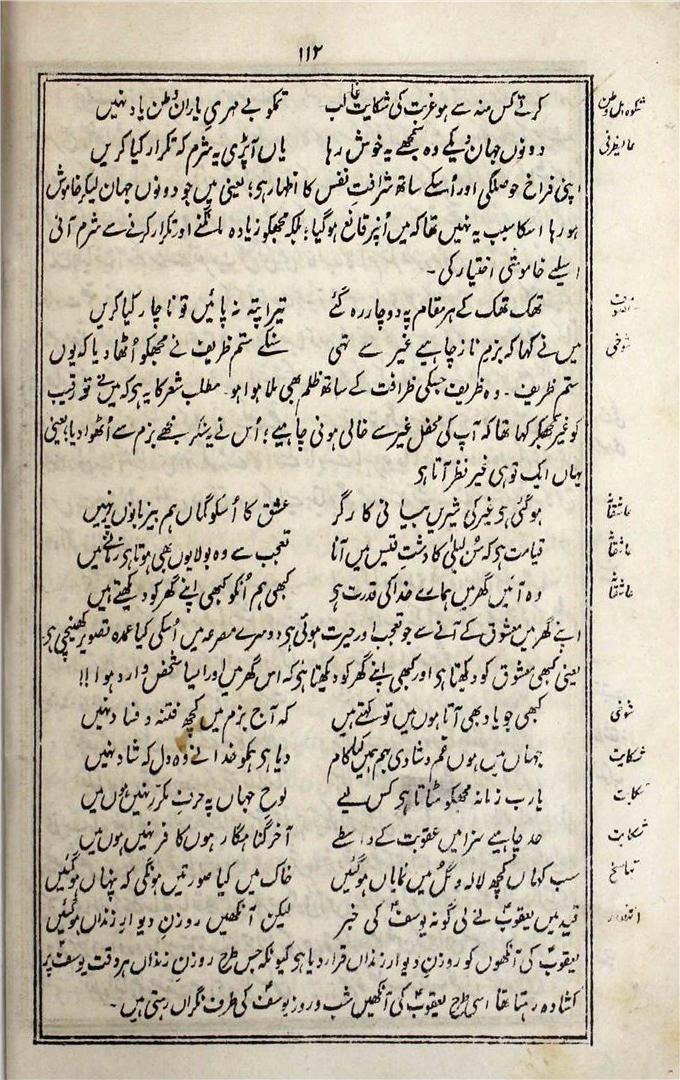 ۱۱۲
شکوہ اہل وطن
کرتے کس منہ سے ہو غربت کی شکایت غالب تمکو بے مہریِ یارانِ وطن یاد نہیں
عالیظرفی
دونوں جہان دیکے وہ سمجھے یہ خوش رہا یاں آپڑی یہ شرم کہ تکرار کیا کریں
اپنی فراخ حوصلگی اور اُسکے ساتھ شرافتِ نفس کا اظہار ہی؛ یعنی میں جو دونوں جہان لیکر خاموش
ہو رہا اسکا سبب یہ نہیں تھا کہ میں اُنپر قانع ہوگیا؛ بلکہ مجھکو زیادہ مانگنے اور تکرار کرنے سے شرم آئی
اسلئے خاموشی اختیار کی۔
تھک تھک کے ہر مقام پہ دو چار رہ گئے تیرا پتہ نہ پائیں تو ناچار کیا کریں
شوخی
میں نے کہا کہ بزمِ ناز چاہیے غیر سے تہی سنکے ستم ظریف نے مجھکو اُٹھا دیا کہ یوں
ستم ظریف۔ وہ ظریف جسکی ظرافت کے ساتھ ظلم بھی ملا ہوا ہو۔ مطلب شعر کا یہ ہی کہ میں نے تو رقیب
کو غیر سمجھکر کہا تھا کہ آپ کی محفل غیر سے خالی ہونی چاہیے؛ اُس نے یہ سنکر مجھے بزم سے اُٹھوا دیا؛ یعنی
یہاں ایک تو ہی غیر نظر آتا ہی
عاشقانہ
ہوگئی ہی غیر کی شیریں بیانی کارگر عشق کا اُسکو گماں ہم بیزبانوں پر نہیں
عاشقانہ
قیامت ہی کہ سُن لیلیٰ کا دشتِ قیس میں آنا تعجب سے وہ بولا یوں بھی ہوتا ہی زمانے میں
عاشقانہ
وہ آئیں گھر میں ہمارے خدا کی قدرت ہی کبھی ہم اُنکو کبھی اپنے گھر کو دیکھتے ہیں
اپنے گھر میں معشوق کے آنے سے جو تعجب اور حیرت ہوئی ہی دوسرے مصرعہ میں اُسکی کیا عمدہ تصویر کھینچی ہی
یعنی کبھی معشوق کو دیکھتا ہی اور کبھی اپنے گھر کو دیکھتا ہی کہ اس گھر میں اور ایسا شخص وارد ہوا !!
شوخی
کبھی جو یاد بھی آتا ہوں میں تو کہتے ہیں کہ آج بزم میں کچھ فتنہ و فساد نہیں
شکایت
جہاں میں ہوں غم و شادی بہم ہمیں کیا کام دیا ہی ہمکو خدا نے وہ دل کہ شاد نہیں
شکایت
یارب زمانہ مجھکو مٹاتا ہی کس لیے لوحِ جہاں پہ حرفِ مکرّر نہیں ہوں میں
شکایت
حد چاہیے سزا میں عقوبت کے واسطے آخر گناہگار ہوں کافر نہیں ہوں میں
تناسخ
سب کہاں کچھ لالہ و گُل میں نمایاں ہوگئیں خاک میں کیا صورتیں ہونگی کہ پنہاں ہوگئیں
قید میں یعقوبؑ نے لی گو نہ یوسفؑ کی خبر لیکن آنکھیں روزنِ دیوارِ زنداں ہوگئیں
یعقوبؑ کی آنکھوں کو روزنِ دیوارِ زنداں قرار دیا ہی کیونکہ جس طرح روزنِ زنداں ہر وقت یوسفؑ پر
کشادہ رہتا تھا اسی طرح یعقوبؑ کی آنکھیں شب و روز یوسفؑ کی طرف نگراں رہتی ہیں۔